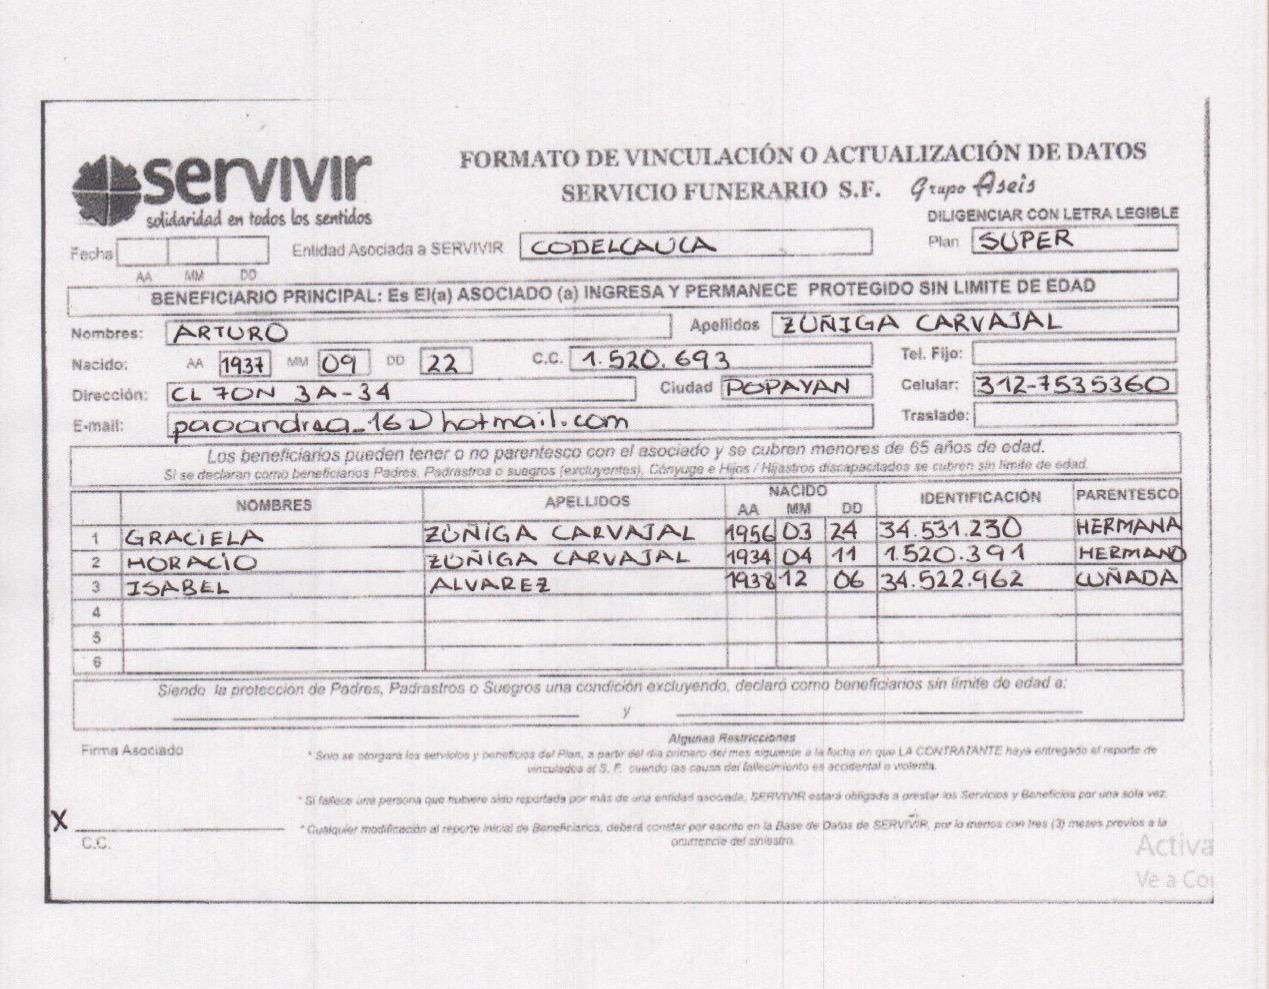 servivir
solidaridad en todos los sentidos
FORMATO DE VINCULACIÓN O ACTUALIZACIÓN DE DATOS
SERVICIO FUNERARIO S.F. Grupo Aseis
DILIGENCIAR CON LETRA LEGIBLE
Fecha Entidad Asociada a SERVIVIR CODELCAUCA Plan SUPER
AA MM DD
BENEFICIARIO PRINCIPAL: Es El(a) ASOCIADO (a) INGRESA Y PERMANECE PROTEGIDO SIN LIMITE DE EDAD
Nombres: ARTURO Apellidos ZÚÑIGA CARVAJAL
Nacido: AA 1937 MM 09 DD 22 C.C. 1.520.693 Tel. Fijo:
Dirección: CL 70N 3A-34 Ciudad POPAYAN Celular: 312-7535360
E-mail: paoandrea_16@hotmail.com Traslado:
Los beneficiarios pueden tener o no parentesco con el asociado y se cubren menores de 65 años de edad.
Si se declaran como beneficiarios Padres, Padrastros o suegros (excluyentes), Cónyuge e Hijos / Hijastros discapacitados se cubren sin limite de edad.
NOMBRES APELLIDOS NACIDO IDENTIFICACIÓN PARENTESCO
AA MM DD
1 GRACIELA ZÚÑIGA CARVAJAL 1956 03 24 34.531.230 HERMANA
2 HORACIO ZÚÑIGA CARVAJAL 1934 04 11 1.520.391 HERMANO
3 ISABEL ALVAREZ 1938 12 06 34.522.962 CUÑADA
4
5
6
Siendo la protección de Padres, Padrastros o Suegros una condición excluyendo, declaró como beneficiarios sin limite de edad a:
y
Firma Asociado
Algunas Restricciones
* Solo se otorgara los servicios y beneficios del Plan, a partir del día primero del mes siguiente a la fecha en que LA CONTRATANTE haya entregado el reporte de
vinculados al S. F. cuando las causa del fallecimiento es accidental o violenta.
* Si fallece una persona que hubiere sido reportada por más de una entidad asociada, SERVIVIR estará obligada a prestar los Servicios y Beneficios por una sola vez.
X
* Cualquier modificación al reporte inicial de Beneficiarios, deberá constar por escrito en la Base de Datos de SERVIVIR, por lo menos con tres (3) meses previos a la
ocurrencia del siniestro.
C.C.
Activa
Ve a Co